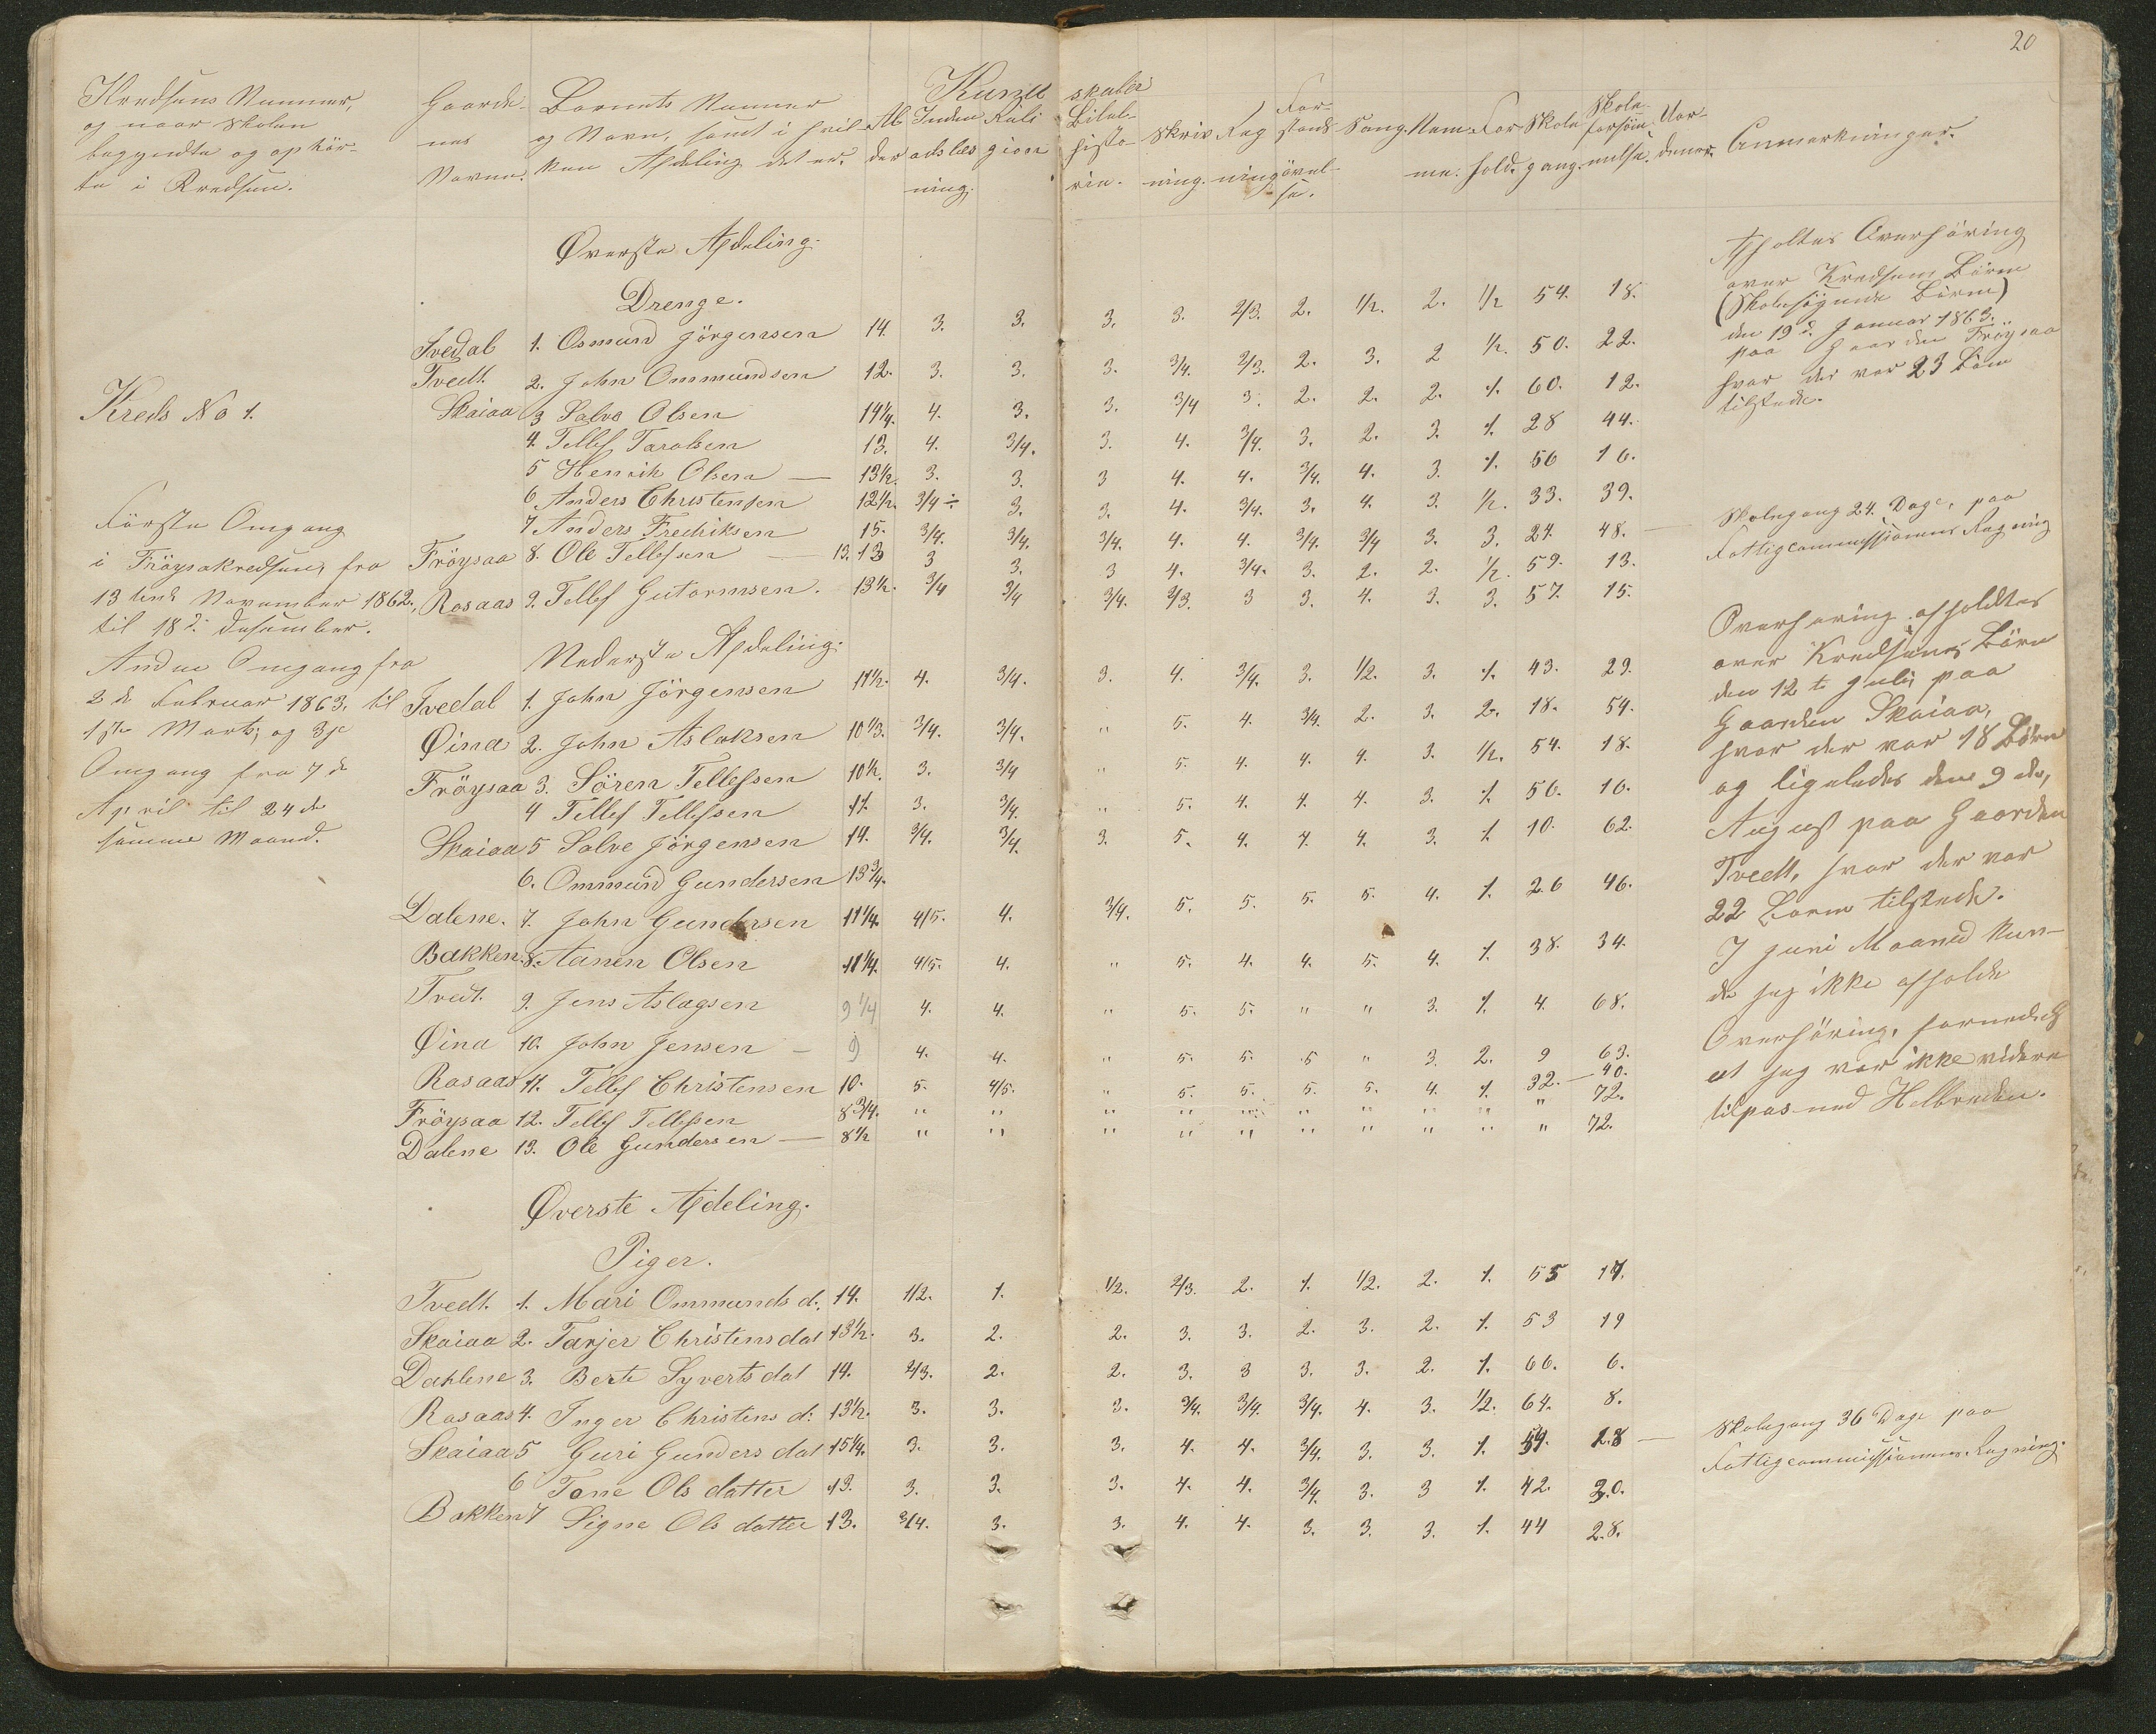 20
Kundskaber
Kredsens Nummer,
og naar Skolen
begyndte og ophör-
te i Kredsen.
Gaarde-
nes
Navne.
Barnets Nummer
og Navn, samt i hvil-
ken Afdeling det er.
Al-
der
Inden
adslæs
ning.
Reli
gion
Bibel-
histo-
rie.
Skriv
ning.
Reg
ning
For-
stands
övel-
se.
Sang.
Nem-
me.
For
hold.
Skole
gang.
Skole-
forsöm-
melse.
Vor-
dener.
Anmerkninger.
Øverste Afdeling.
Drenge.
Kreds No 1.
Ivedal 1. Osmund Jörgensen 14. 3. 3. 3. 3. 2/3. 2. 1/2. 2. 1/2 54. 18.
Tvedt. 2. John Ommundsen 12. 3. 3. 3. 3/4. 2/3. 2. 3. 2 1/2. 50. 22.
Skaiaa 3 Salve Olsen 14 1/4. 4. 3. 3. 3/4 3. 2. 2. 2. 1. 60. 12.
4. Tellef Taralsen 13. 4. 3/4. 3. 4. 3/4. 3. 2. 3. 1. 28 44.
5 Henrik Olsen — 13 1/2. 3. 3. 3 4. 4. 3/4. 4. 3. 1. 56 16.
6 Anders Christensen 12 1/2. 3/4 ÷ 3. 3. 4. 3/4. 3. 4. 3. 1/2. 33. 39.
7 Anders Fredriksen 15. 3/4. 3/4. 3/4. 4. 4. 3/4. 3/4 3. 3. 24. 48. —
Fröysaa 8. Ole Tellefsen — 13. 13 3 3. 3 4. 3/4. 3. 2. 2. 1/2. 59. 13.
Rosaas 9. Tellef Gutormsen. 13 1/2. 3/4 3/4 3/4. 2/3. 3 3. 4. 3. 3. 57. 15.
Förste Omgang
i Fröysakredsen, fra
13 tende November 1862.
til 18 d. Desember.
Anden Omgang fra
2 d. Februar 1863. til
1ste Marts, og 3je
Omgang fra 7 d
April til 24 de
samme Maaned.
Nederste Afdeling.
Ivedal 1. John Jörgensen 11 1/2. 4. 3/4. 3. 4. 3/4. 3. 1/2. 3. 1. 43. 29.
Øina 2. John Aslaksen 10 1/3. 3/4. 3/4. " 5. 4. 3/4. 2. 3. 2. 18. 54.
Fröysaa 3. Sören Tellefsen 10 1/2. 3. 3/4 " 5. 4. 4. 4. 3. 1/2. 54. 18.
4 Tellef Tellefsen 11. 3. 3/4. " 5. 4. 4. 4. 3. 1. 56. 16.
Skaiaa 5 Salve Jörgensen 14. 3/4. 3/4. 3. 5. 4. 4. 4. 3. 1. 10. 62.
6. Ommund Gundersen 13 3/4.
Dalene. 7. John Gundersen 11 1/4. 4/5. 4. 3/4. 5. 5. 5. 5. 4. 1. 26 46.
Bakken. 8. Aanen Olsen 11 1/4. 4/5. 4. " 5. 4. 4. 5. 4. 1. 38. 34.
Tvedt. 9. Jens Aslagsen 9 1/4 4. 4. " 5. 5. " " 3. 1. 4. 68.
Øina 10. John Jensen — 9 4. 4. " 5. 5. 5 " 3. 2. 9 63.
Rosaas 11. Tellef Christensen 10. 5. 4/5. " 5. 5. 5. 5. 4. 1. 32. — 40.
Fröysaa 12. Tellef Tellefsen 8 3/4. " " " " " " " " " " 72.
Dalene 13. Ole Gundersen — 8 1/2 " " " " " " " " " " 72.
Øverste Afdeling.
Piger.
Tvedt. 1. Mari Ommunds d. 14. 1/2. 1. 1/2. 2/3. 2. 1. 1/2. 2. 1. 55 17.
Skaiaa 2. Tarjer Christens dat 13 1/2. 3. 2. 2. 3. 3. 2. 3. 2. 1. 53 19
Dahlene 3. Berte Syverts dat 14. 2/3. 2. 2. 3. 3 3. 3. 2. 1. 66. 6.
Rosaas 4. Inger Christens d: 13 1/2. 3. 3. 3. 3/4. 3/4. 3/4. 4. 3. 1/2. 64. 8.
Skaiaa 5 Guri Gunders dat 15 1/4. 3. 3. 3. 4. 4. 3/4. 3. 3. 1. 54. 18 —
6 Tone Ols datter 13. 3. 3. 3. 4. 4. 3/4. 3. 3 1. 42. 30.
Bakken 7 Signe Ols datter 13. 3/4. 3. 3. 4. 4. 3. 3. 3. 1. 44 28.
Afholtes Overhöring
over Kredsens Börn
(Skolesögende Börn)
den 19 d. Januar 1863.
paa Gaarden Fröysaa
hvor der var 23 Börn
tilstede.
Skolegang 24. Dage, paa
Fattigcommissionens Regning
Overhøring afholdtes
over Kredsens Börn
den 12 t. Juli, paa
Gaarden Skaiaa,
hvor der var 18 Börn
og ligeledes den 9 de,
August paa Gaarden
Tvedt, hvor der var
22 Børn tilstede.
I Juni Maaned kun-
de jeg ikke afholde
Overhöring, formedelst
at jeg var ikke videre
tilpas med Helbreden.
Skolegang 36 Dage paa
Fattigcommissionens Regning.